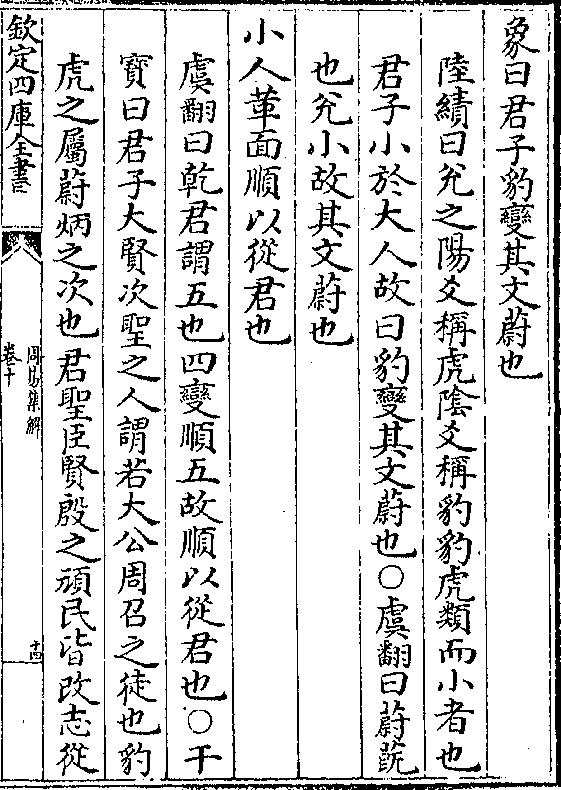 象曰君子豹變其文蔚也
陸績曰兊之陽爻稱虎陰爻稱豹豹虎類而小者也
君子小於大人故曰豹變其文蔚也○虞翻曰蔚蔇
也兊小故其文蔚也
小人革面順以從君也
虞翻曰乾君謂五也四變順五故順以從君也○干
寶曰君子大賢次聖之人謂若大公周召之徒也豹
虎之屬蔚炳之次也君聖臣賢殷之頑民皆改志從
欽定四庫全書
周易集解
卷十
十四